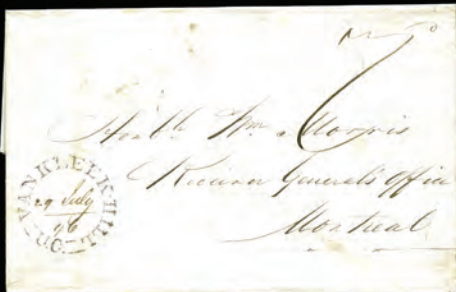 7
Honble Wm Morris
Receiver General's Office
Montreal
VANKLEEK-HILL
29 July
46